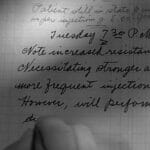 Patient still in state of
upon injection of
Tuesday 7 30 P.
Note increased resistan
Necessitating stronger a
more frequent injections
However, will perform
di